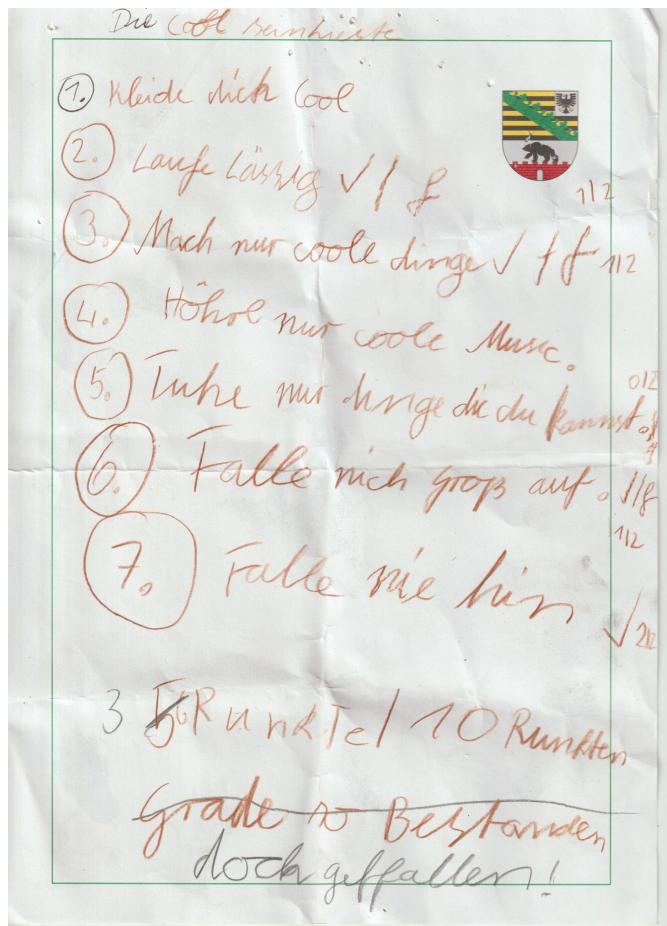 Die cool
1. Kleide dich Cool
2. Laufe Lässig √ / f
1/2
3. Mach nur coole dinge √ / f 1/2
4. Höhre nur coole Music.
0/2
5. Tuhe nur dinge die du kannst. f
6. Falle nich groß auf. √/f
1/2
7. Falle nie hin
√ 2/2
3 Runkte / 10 Runkten
Grade so Bestanden
doch geffallen!